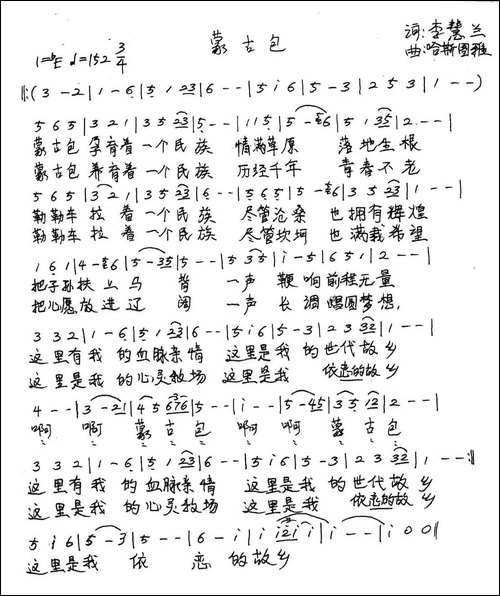 蒙古包
词:李慧兰
曲:哈斯图雅
1=♭E ♩=152 3/4
‖:(3 - 2|1 - 6|5 1 23|6 - -|5 i 6|5 - 3|2 5 3|1 - -)
5 6 5|3 2 1|3 5 23|5 - -|1 1 5|5 - 6|5 1 35|2 - -|
蒙古包 孕育着一个民族 情满草原 落地生根
蒙古包 养育着一个民族 历经千年 青春不老
5 6 5|3 2 1|3 5 23|6 - -|5 6 5|5 - 6|3 5 23|1 - -|
勒勒车 拉着一个民族 尽管沧桑 也拥有辉煌
勒勒车 拉着一个民族 尽管坎坷 也满载希望
1 6 1|4 - 6|5 - 35|5 - -|5 3 5|i - 5|6 5 1|2 - -|
把子孙扶上马背 一声鞭响前程无量
把心愿放进辽阔 一声长调唱圆梦想,
3 3 2|1 - 6|5 1 23|6 - -|5 i 6|5 - 3|2 3 32|1 - -|
这里有我的血脉亲情 这里是我的世代故乡
这里是我的心灵牧场 这里是我 依恋的故乡
4 - -|3 - 21|4 5 676|5 - -|i - -|5 - 45|3 5 12|2 - -|
啊 啊 蒙古包 啊 啊 蒙古包
3 3 2|1 - 6|5 1 23|6 - -|5 i 6|5 - 3|2 3 32|1 - -:‖
这里有我的血脉亲情 这里是我的世代故乡
这里是我的心灵牧场 这里是我 依恋的故乡
5 i 6|5 - 3|5 - -|6 - i|i i2i i|i - -|i 0 0‖
这里是我 依恋的故乡